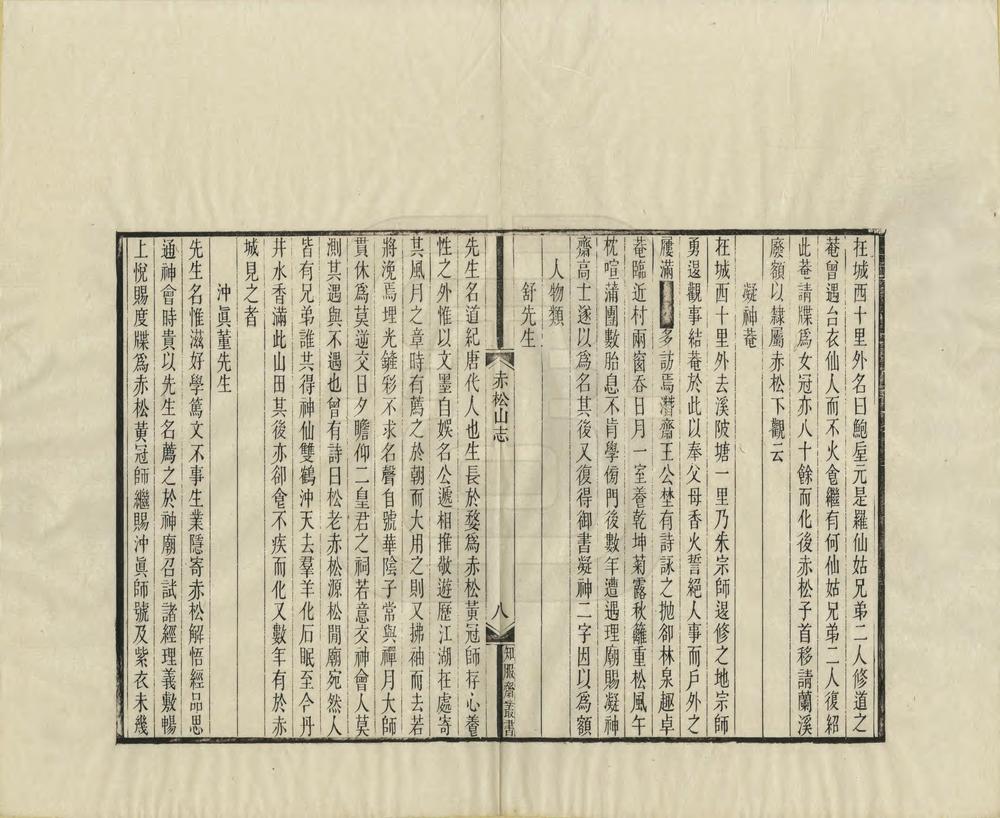 在城西十里外名曰鮑垕元是羅仙姑兄弟二人修道之
菴曾遇台衣仙人而不火食繼有何仙姑兄弟二人復紹
此菴請牒爲女冠亦八十餘而化後赤松子首移請蘭溪
廢額以隸屬赤松下觀云
凝神菴
在城西十里外去溪陂塘一里乃朱宗師逷修之地宗師
勇退觀事結菴於此以奉父母香火誓絕人事而戶外之
屨滿 多訪焉潛齋王公埜有詩詠之拋卻林泉趣卓
菴臨近村兩窗吞日月一室養乾坤菊露秋籬重松風午
枕喧蒲團數胎息不肯學傍門後數年遭遇理廟賜凝神
齋高士遂以爲名其後又復得御書凝神二字因以爲額
人物類
舒先生
赤松山志
八
知服齋叢書
先生名道紀唐代人也生長於婺爲赤松黃冠師存心養
性之外惟以文墨自娛名公遞相推敬遊歷江湖在處寄
其風月之章時有薦之於朝而大用之則又拂袖而去若
將浼焉埋光鏟彩不求名聲自號華陰子常與禪月大師
貫休爲莫逆交日夕瞻仰二皇君之祠若意交神會人莫
測其遇與不遇也曾有詩曰松老赤松源松閒廟宛然人
皆有兄弟誰共得神仙雙鶴沖天去羣羊化石眠至今丹
井水香滿此山田其後亦卻食不疾而化又數年有於赤
城見之者
沖眞董先生
先生名惟滋好學篤文不事生業隱寄赤松解悟經品思
通神會時貴以先生名薦之於神廟召試諸經理義敷暢
上悅賜度牒爲赤松黃冠師繼賜沖眞師號及紫衣未幾